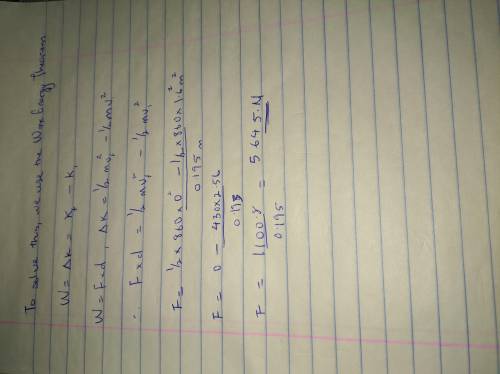 To solve this, we use the Work Energy theorem
W = ΔK = K_f - K_i
W = F x d, ΔK = 1/2 mv_f² - 1/2 mv_i²
∴ F x d = 1/2 mv_f² - 1/2 mv_i²
F = 1/2 x 860 x 0² - 1/2 x 860 x 1.6 m²
0.195 m
F = 0 - 430 x 2.56
0.195
F = 1100.8 = 5645.N
0.195